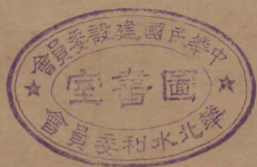 中華民國建設委員會
圖書室
華北水利委員會